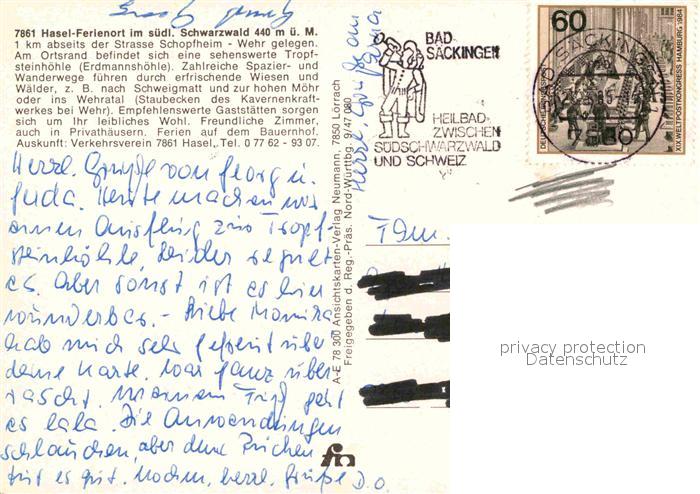 7861 Hasel-Ferienort im südl. Schwarzwald 440 m ü. M.
1 km abseits der Strasse Schopfheim - Wehr gelegen.
Am Ortsrand befindet sich eine sehenswerte Tropf-
steinhöhle (Erdmannshöhle). Zahlreiche Spazier- und
Wanderwege führen durch erfrischende Wiesen und
Wälder, z. B. nach Schweigmatt und zur hohen Möhr
oder ins Wehratal (Staubecken des Kavernenkraft-
werkes bei Wehr). Empfehlenswerte Gaststätten sorgen
sich um Ihr leibliches Wohl. Freundliche Zimmer,
auch in Privathäusern. Ferien auf dem Bauernhof.
Auskunft: Verkehrsverein 7861 Hasel, Tel. 0 77 62 - 93 07.
Herzl. Grüße von Georg u.
Heute machen wir
einen Ausflug zur Tropf
steinhöhle, leider regnet
es. Aber sonst ist es hier
wunderbar. - Liebe Monika
hab mich sehr gefreut über
deine Karte. War ganz über
rascht. Meinem geht
es lala. Die Anwendungen
schlauchen, aber dem Rücken
tut es gut. Nochm. herzl. Grüße D. O.
A-E 78 300 Ansichtskarten-Verlag Neumann, 7850 Lörrach
Freigegeben d. Reg.-Präs. Nord-Württbg. 9/47 080
Herzl. Grüße an
BAD
SÄCKINGEN
HEILBAD
ZWISCHEN
SÜDSCHWARZWALD
UND SCHWEIZ
60
DEUTSCHE BUNDESPOST
XIX WELTPOSTKONGRESS HAMBURG 1984
BAD SÄCKINGEN
7880
Fam.
privacy protection
Datenschutz
fn